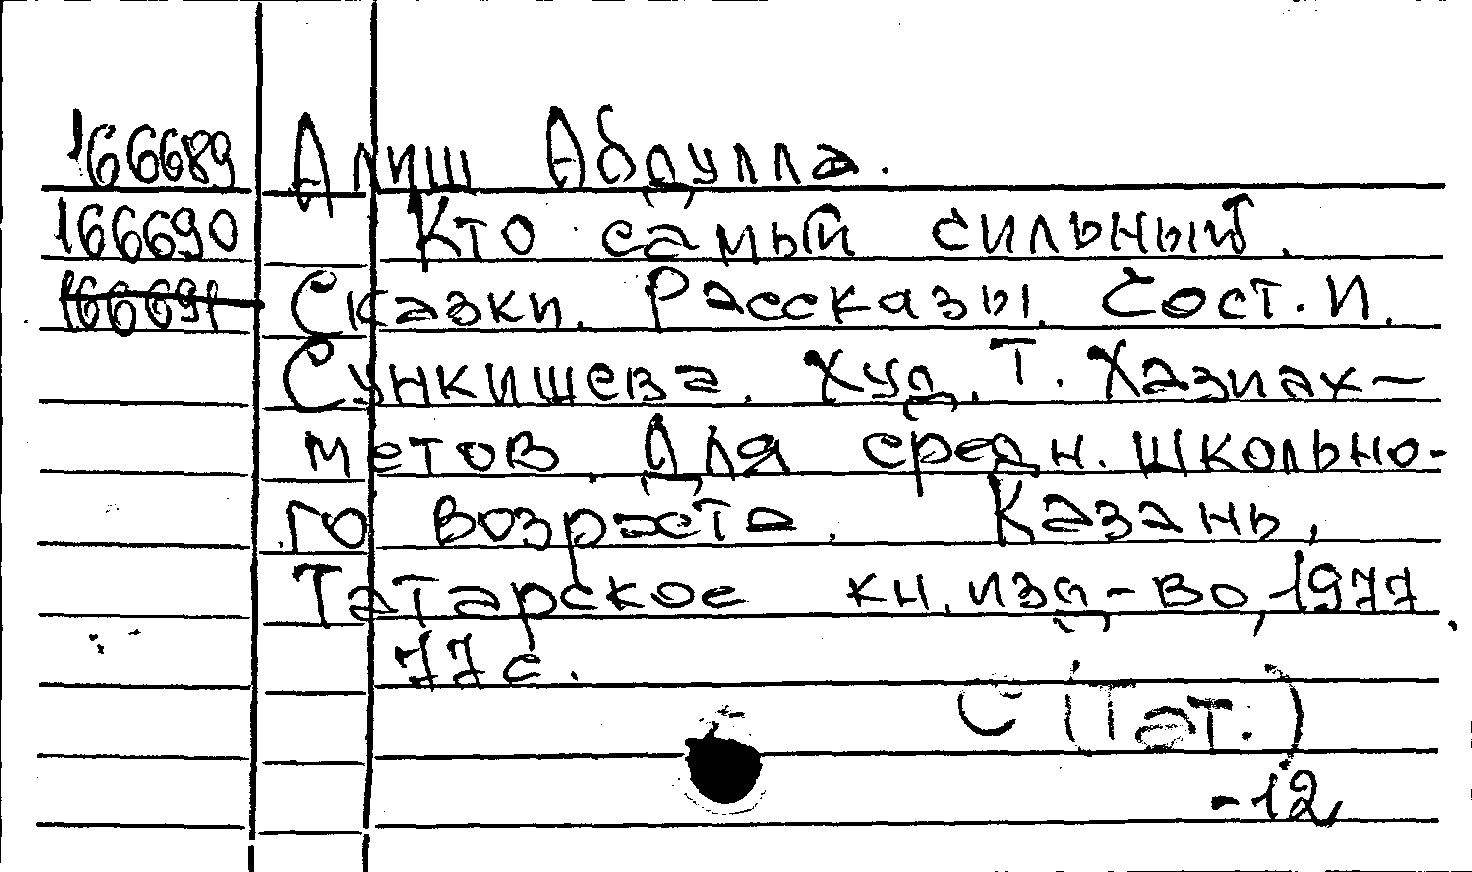 166689 Алиш Абдулла.
166690 Кто самый сильный.
166691 Сказки. Рассказы. Сост. И.
Сункишева. Худ. Т. Хазиах-
метов. Для средн. школьно-
го возраста. Казань,
Татарское кн. изд-во, 1977.
77 с.
С (Тат.)
-12